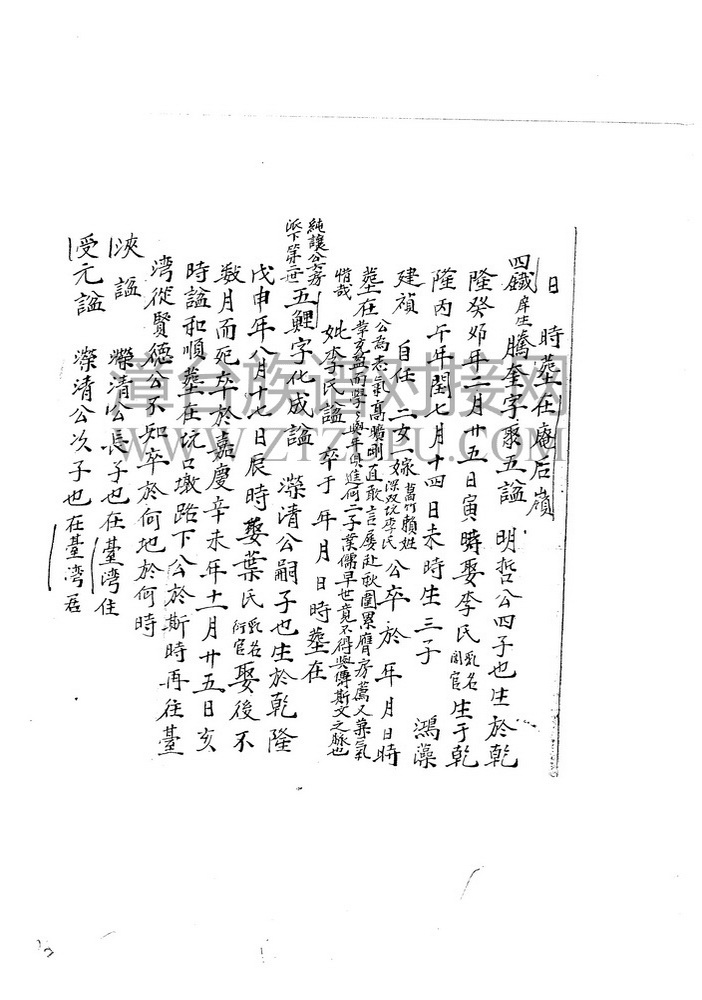 日 時葬在庵后嶺
四鐵庠生騰奎字聚五諡 明哲公四子也生於乾
隆癸卯年二月廿五日寅時娶李氏乳名閏官生于乾
隆丙午年閏七月十四日未時生三子 鴻藻
建禎 自任 二女一嫁菖竹賴姓深双坑李氏公卒於 年月日時
葬在公為志氣高曠剛直敢言屢赴秋圍累膺房薦又兼氣
惜哉 妣李氏諡 卒于 年月日時葬在
純讓公六房派下第二世五鯉字化成諡 濚清公嗣子也生於乾隆
戊申年八月十七日辰時娶葉氏乳名衍官娶後不
數月而死卒於嘉慶辛未年十二月廿五日亥
時諡和順葬在坑口墩路下公於斯時再往臺
湾從賢德公不知卒於何地於何時
浹諡 濚清公長子也在臺湾住
受元諡 濚清公次子也在臺湾居
章台族谱对接网
WWW.ZTZUPU.COM